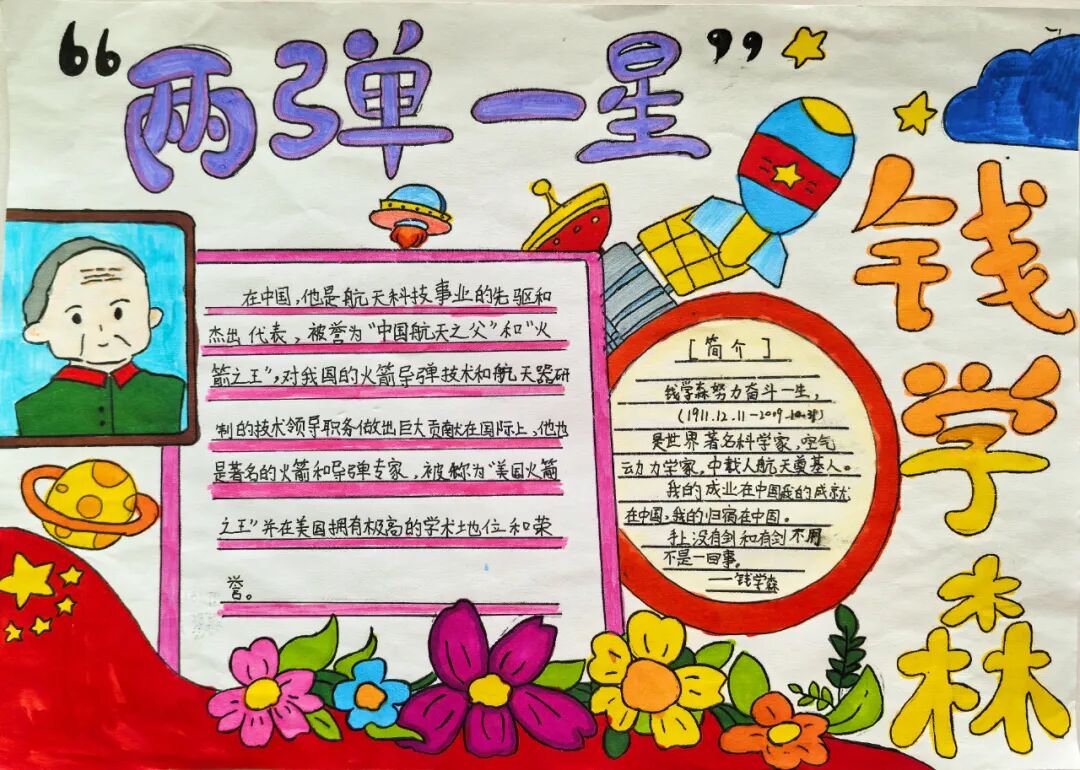 “两弹一星”
钱学森
在中国，他是航天科技事业的先驱和
杰出代表，被誉为“中国航天之父”和“火
箭之王”，对我国的火箭导弹技术和航天器研
制的技术领导职务做出巨大贡献在国际上，他也
是著名的火箭和导弹专家，被称为“美国火箭
之王”并在美国拥有极高的学术地位和荣
誉。
[简介]
钱学森努力奋斗一生，
(1911.12.11-2009.10.31)
是世界著名科学家，空气
动力学家，中载人航天奠基人。
我的成业在中国我的成就
在中国，我的归宿在中国。
手上没有剑和有剑不用
不是一回事。
——钱学森